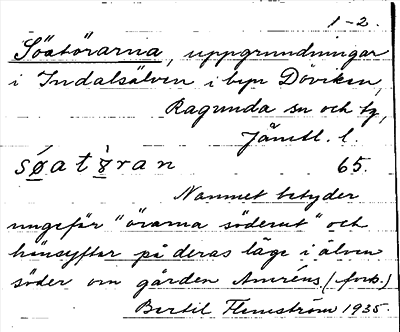 1-2.
Söatörarna, uppgrundningar
i Indalsälven i byn Döviken,
Ragunda sn och tg,
Jämtl. l.
søatøran 65.
Namnet betyder
ungefär "örarna söderut" och
hänsyftar på deras läge i älven
söder om gården Amréns (fork.)
Bertil Flemström 1935.